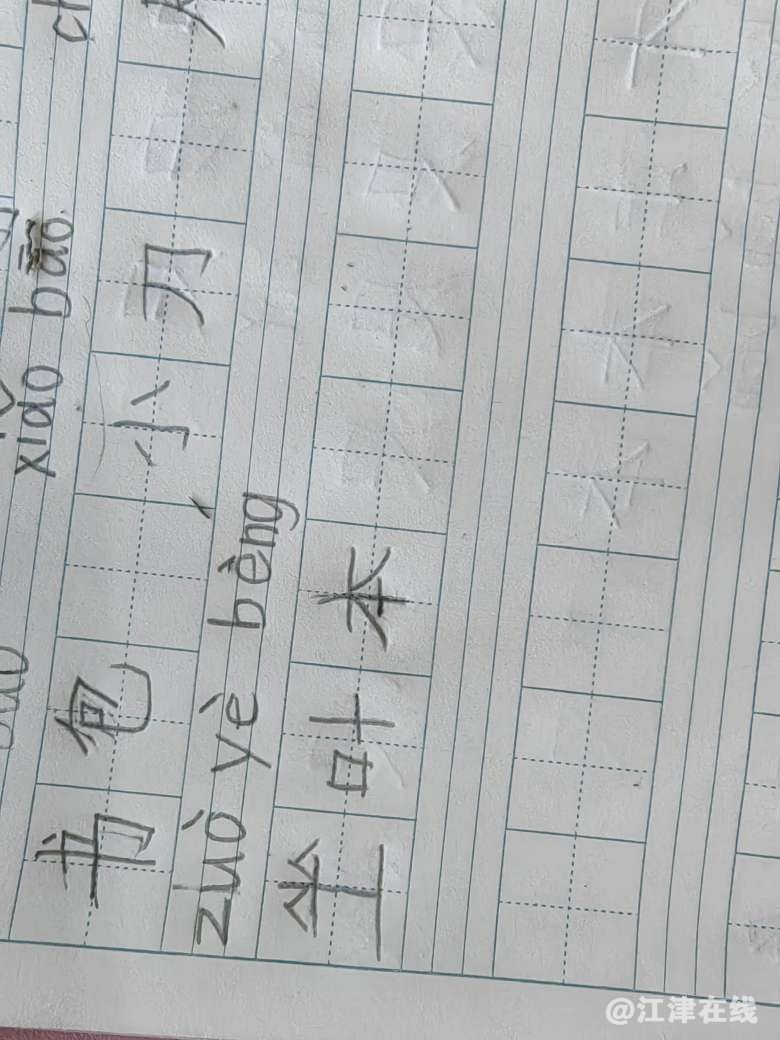 xiǎo bāo
书包 小刀
zuò yè bèng
坐叶本
@江津在线